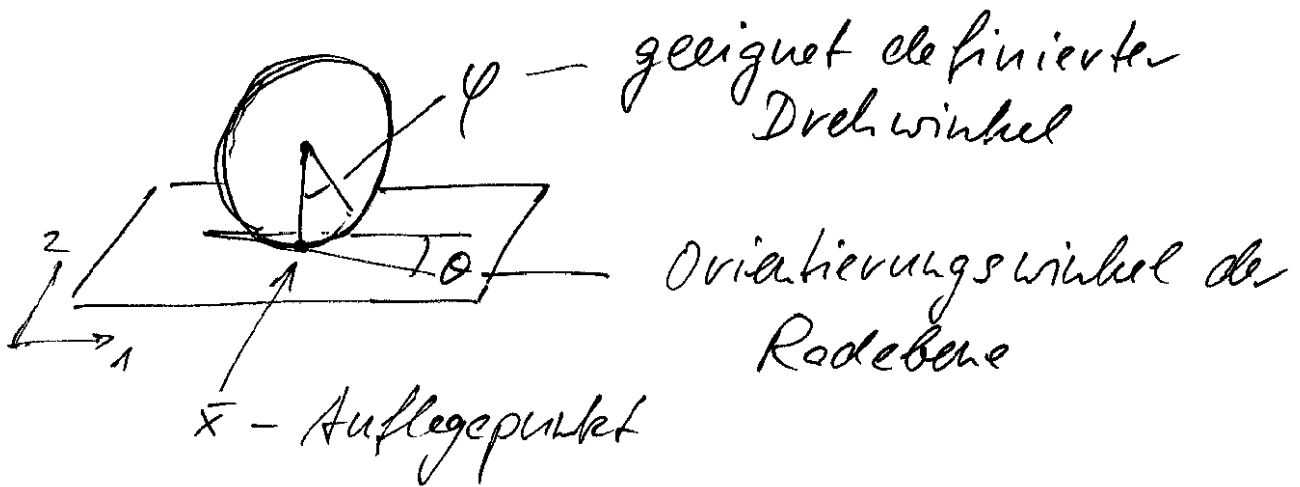 φ — geeignet definierter
Drehwinkel
2
θ — Orientierungswinkel der
1
Radebene
x̄ - Auflegepunkt